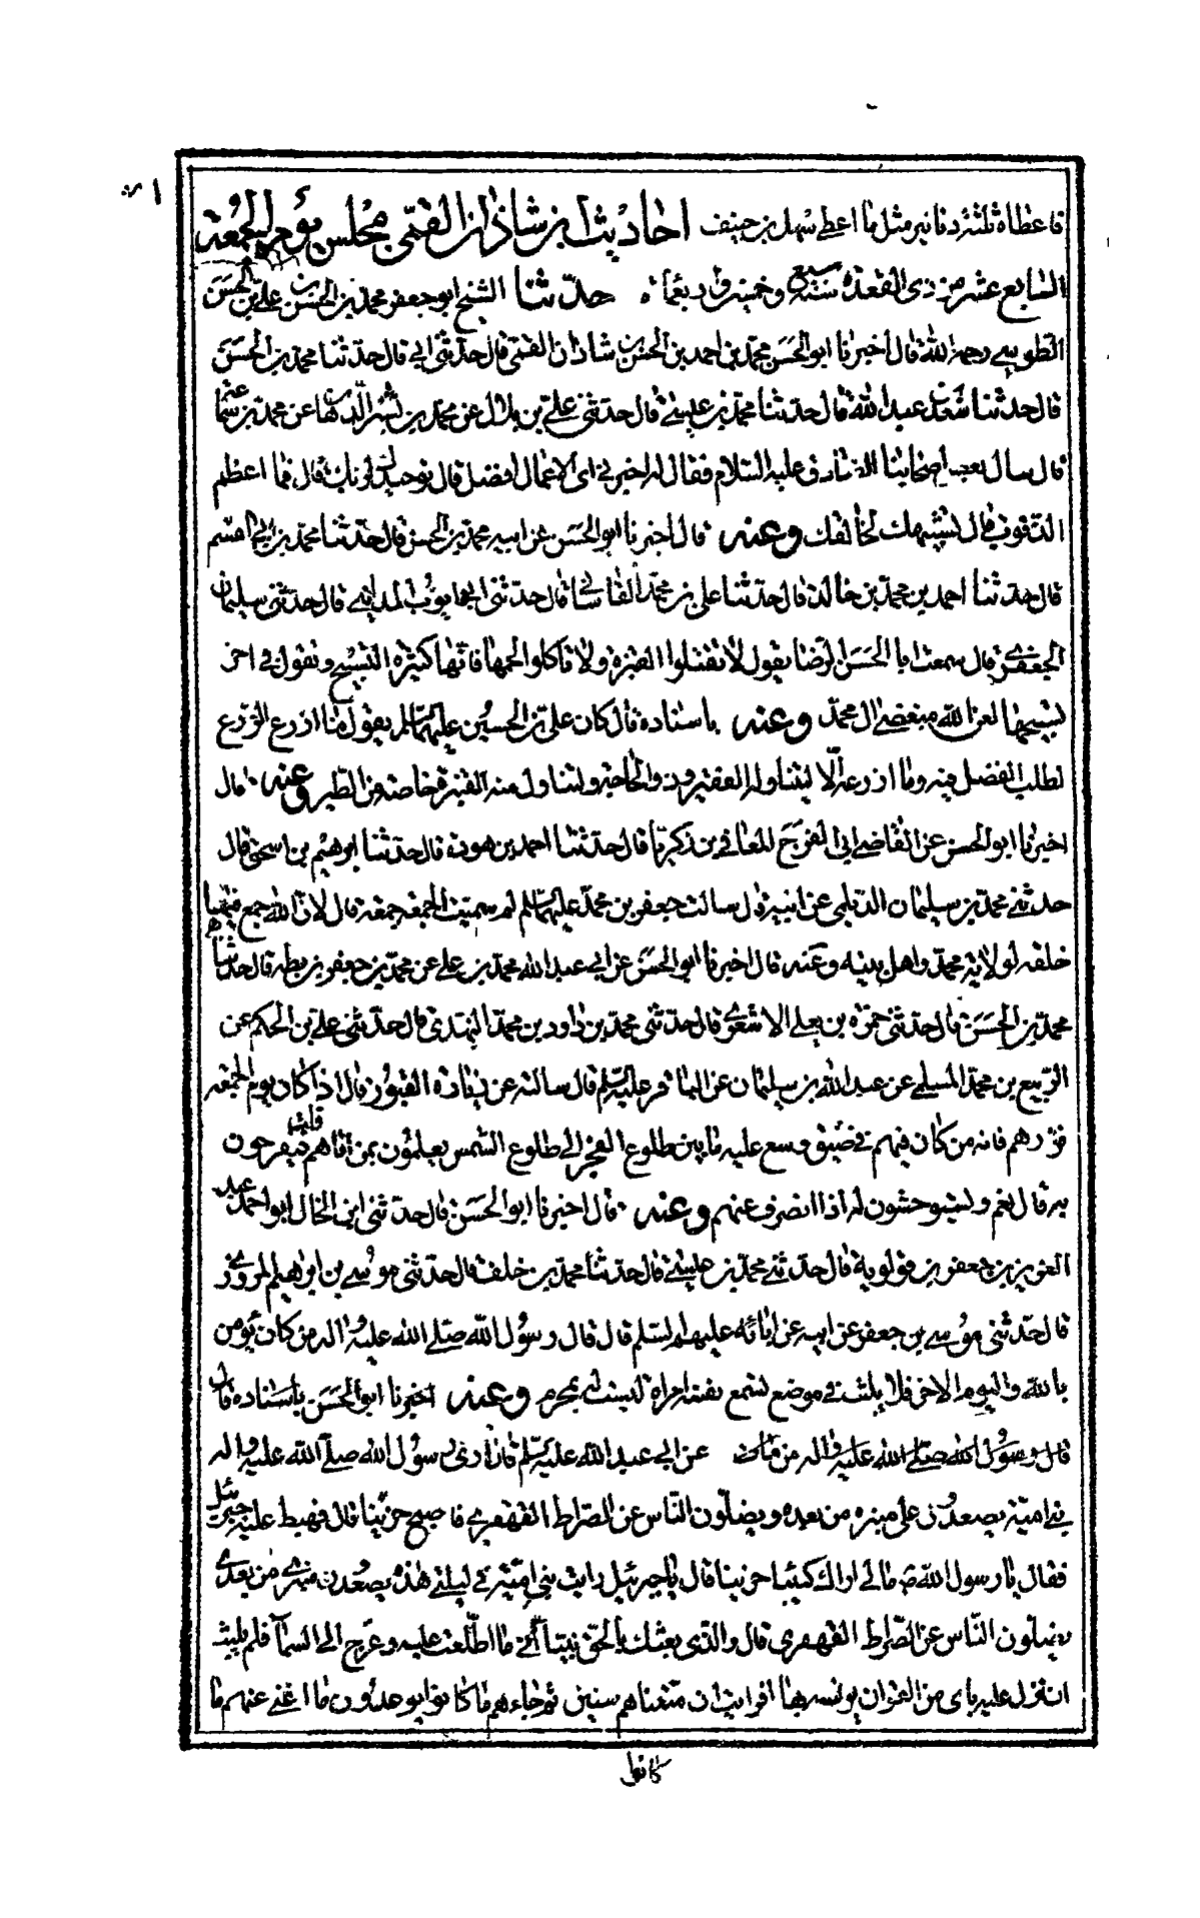 فاعطاه ثلثة دنانير مثل ما اعطى سهل بن حنيف احاديث ابن شاذان القمى مجلس يوم الجمعة
السابع عشر من ذى القعده سنة سبع وخمسين واربعمائه حدثنا الشيخ ابو جعفر محمد بن الحسن بن على بن الحسن
الطوسى رحمه الله قال اخبرنا ابو الحسن محمد بن احمد بن الحسن بن شاذان القمى قال حدثنى ابى قال حدثنا محمد بن الحسن
قال حدثنا سعد بن عبد الله قال حدثنا محمد بن عيسى قال حدثنى على بن بلال عن محمد بن بشر الدهان عن محمد بن سماعة
قال سال بعض اصحابنا الصادق عليه السلام فقال له اخبرنى اى الاعمال افضل قال توحيدك لربك قال فما اعظم
الذنوب قال تشبيهك لخالقك وعنه قال اخبرنا ابو الحسن عن ابيه محمد بن الحسن قال حدثنا محمد بن ابى القسم
قال حدثنا احمد بن محمد بن خالد قال حدثنا على بن محمد القاسانى قال حدثنى ابو ايوب المداينى قال حدثنى سليمان
الجعفرى قال سمعت ابا الحسن الرضا يقول لا تقتلوا القنبرة ولا تاكلوا لحمها فانها كثيرة التسبيح وتقول فى اخر
تسبيحها لعن الله مبغضى ال محمد وعنه باسناده قال كان على بن الحسين عليهما السلم يقول ما ازرع الزرع
لطلب الفضل فيه وما ازرعه الا ليتناوله الفقير وذو الحاجة ولتناول منه القنبرة خاصة من الطير وعنه قال
اخبرنا ابو الحسن عن القاضى ابى الفرج المعافى بن زكريا قال حدثنا احمد بن هوذة قال حدثنا ابرهيم بن اسحق قال
حدثنى محمد بن سليمان الديلمى عن ابيه قال سالت جعفر بن محمد عليهما السلم لم سميت الجمعة جمعة قال لان الله جمع فيها
خلقه لولاية محمد واهل بيته وعنه قال اخبرنا ابو الحسن عن ابى عبد الله محمد بن على عن محمد بن جعفر بن بطه قال حدثنا
محمد بن الحسن قال حدثنى حمزه بن يعلى الاشعرى قال حدثنى محمد بن داود بن محمد النهدى قال حدثنى على بن الحكم عن
الربيع بن محمد المسلى عن عبد الله بن سليمان عن الباقر عليه السلم قال سالته عن زيارة القبور قال اذا كان يوم الجمعة
فزرهم فانه من كان فيهم فى ضيق وسع عليه ما بين طلوع الفجر الى طلوع الشمس يعلمون بمن اتاهم قلت فيفرحون
به قال نعم وليستوحشون له اذا انصرف عنهم وعنه قال اخبرنا ابو الحسن قال حدثنى ابن الخال ابو احمد عبد
العزيز بن جعفر بن قولويه قال حدثنى محمد بن عيسى قال حدثنا محمد بن خلف قال حدثنى موسى بن ابرهيم المروزى
قال حدثنى موسى بن جعفر عن ابيه عن ابائه عليهم السلم قال قال رسول الله صلى الله عليه واله من كان يؤمن
بالله واليوم الاخر فلا يلبث فى موضع تسمع نفسه امراة ليست له بمحرم وعنه اخبرنا ابو الحسن باسناده قال
قال رسول الله صلى الله عليه واله من مات عن ابى عبد الله عليه السلم قال ارى رسول الله صلى الله عليه واله
بنى امية يصعدون على منبره من بعده ويضلون الناس عن الصراط القهقرى فاصبح حزينا قال فهبط عليه جبرئيل
فقال يا رسول الله ص مالى اراك كئيبا حزينا قال يا جبرئيل رايت بنى امية فى ليلتى هذه يصعدون منبرى من بعدى
يضلون الناس عن الصراط القهقرى قال والذى بعثك بالحق نبيا انى ما اطلعت عليه وعرج الى السماء فلم يلبث
ان نزل عليه باى من القران يونسه بها افرايت ان متعناهم سنين ثم جاءهم ما كانوا يوعدون ما اغنى عنهم ما
كانوا